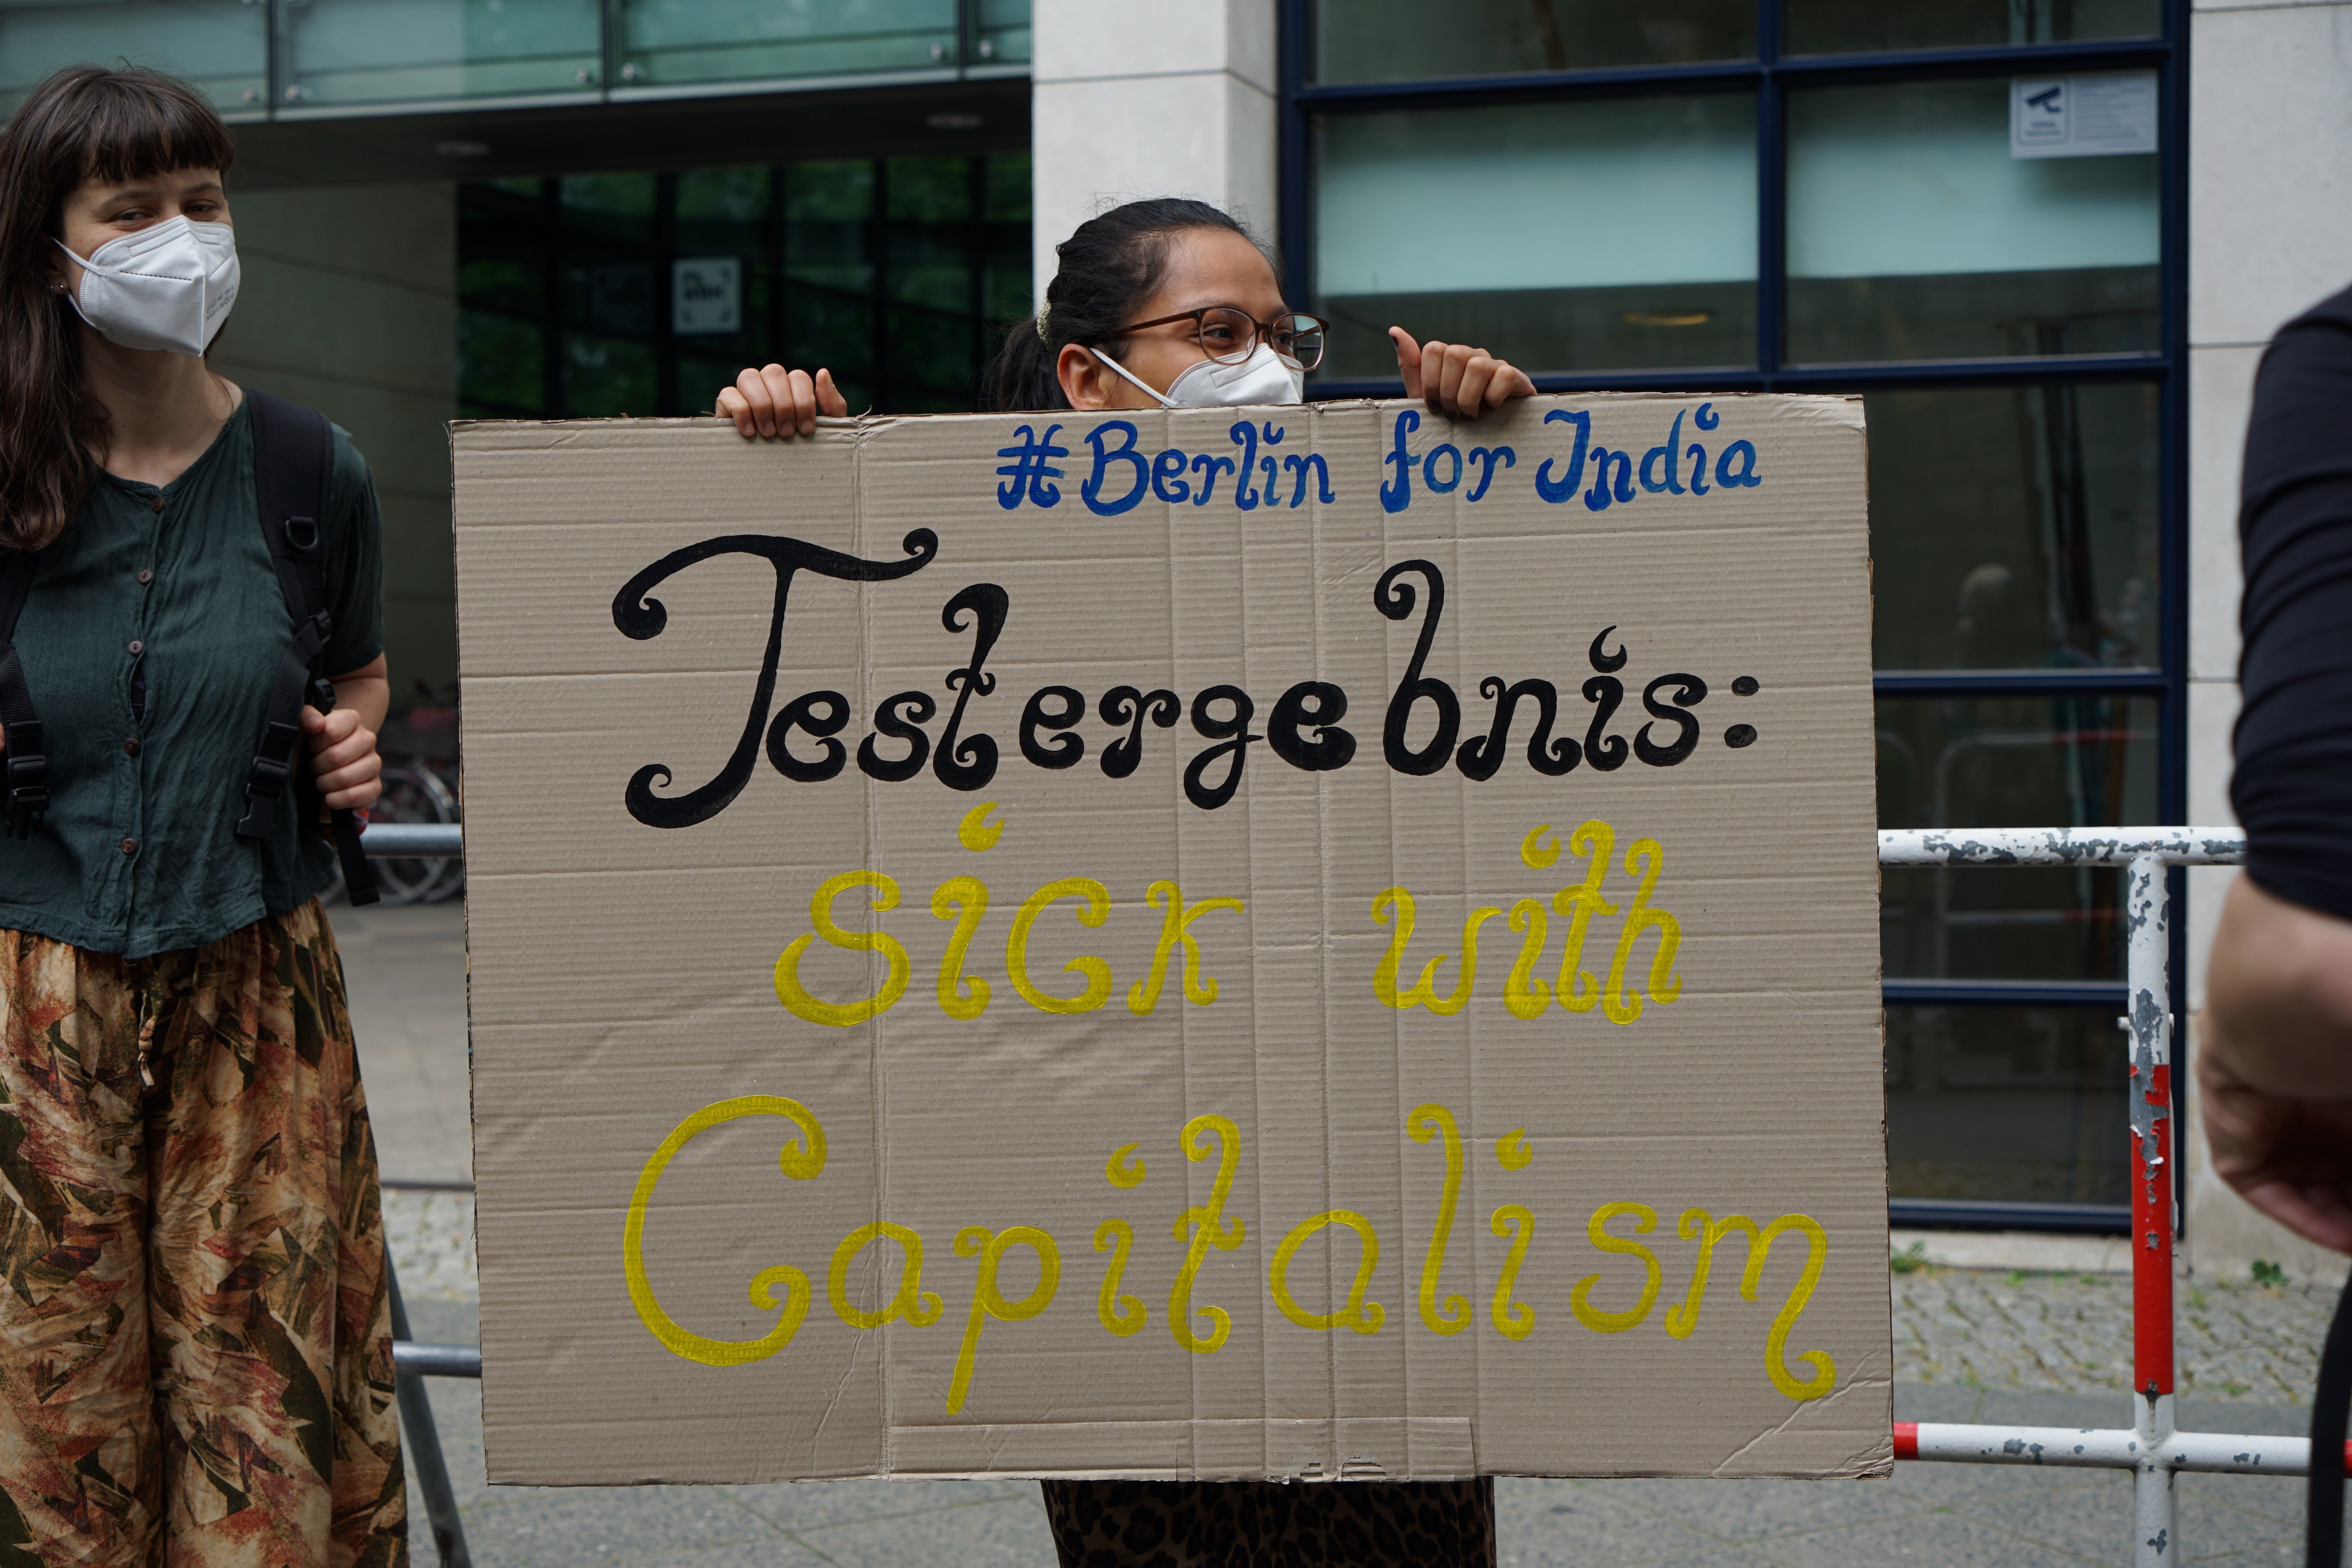 #Berlin for India
Testergebnis:
Sick with
Capitalism